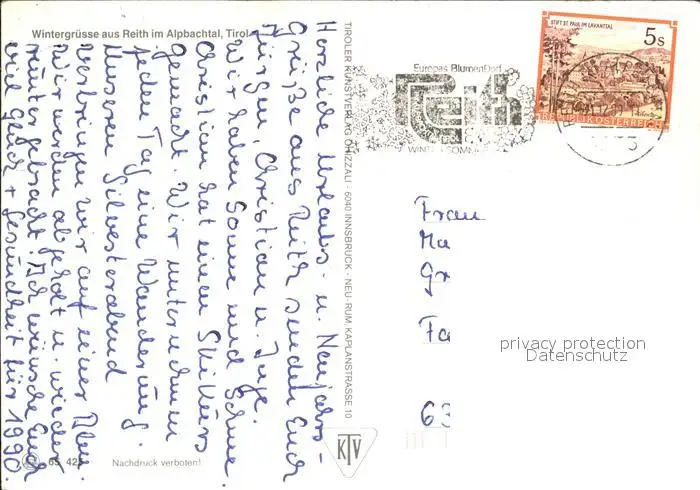 Wintergrüsse aus Reith im Alpbachtal, Tirol
Herzliche Urlaubs- u. Neujahrs-
Grüße aus Reith senden Euch
Jürgen, Christian u. Inge.
Wir haben Sonne und Schnee
Christian hat einen Skikurs
gemacht. Wir unternehmen
jeden Tag eine Wanderung.
Unseren Silvesterabend
verbringen wir auf einer Alm.
Wir werden abgeholt u. wieder
runter gebracht. Ich wünsche Euch
viel Glück + Gesundheit für 1990.
65 425
Nachdruck verboten!
TIROLER KUNSTVERLAG CHIZZALI - 6040 INNSBRUCK - NEU-RUM, KAPLANSTRASSE 10
KTV
Europas BlumenDorf
Reith
STIFT ST. PAUL IM LAVANTTAL
5s
REPUBLIK ÖSTERREICH
Frau
Ma
Gr
Fa
63
privacy protection
Datenschutz